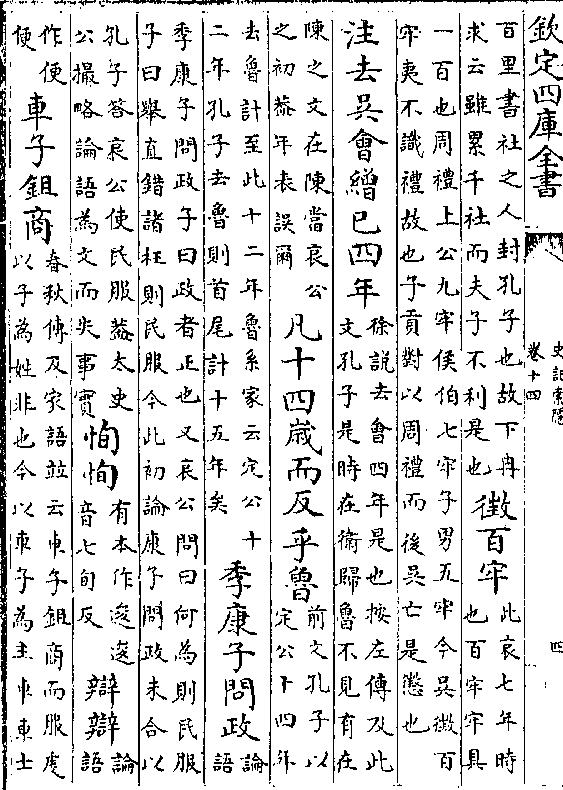 欽定四庫全書
史記索隱
卷十四
四
百里書社之人封孔子也故下冉
求云雖累千社而夫子不利是也
徵百牢
此哀七年時
也百牢牢具
一百也周禮上公九牢侯伯七牢子男五牢今吳徵百
牢夷不識禮故也子貢對以周禮而後吳亡是懲也
注去吳會繒已四年
徐說去會四年是也按左傳及此
文孔子是時在衛歸魯不見有在
陳之文在陳當哀公
之初葢年表誤爾
凡十四歲而反乎魯
前文孔子以
定公十四年
去魯計至此十二年魯系家云定公十
二年孔子去魯則首尾計十五年矣
季康子問政
論
語
季康子問政子曰政者正也又哀公問曰何為則民服
子曰舉直錯諸枉則民服今此初論康子問政未合以
孔子答哀公使民服葢太史
公撮略論語為文而失事實
恂恂
有本作逡逡
音七旬反
辯辯
論
語
作便
便
車子鉏商
春秋傳及家語竝云車子鉏商而服虔
以子為姓非也今以車子為主車車士